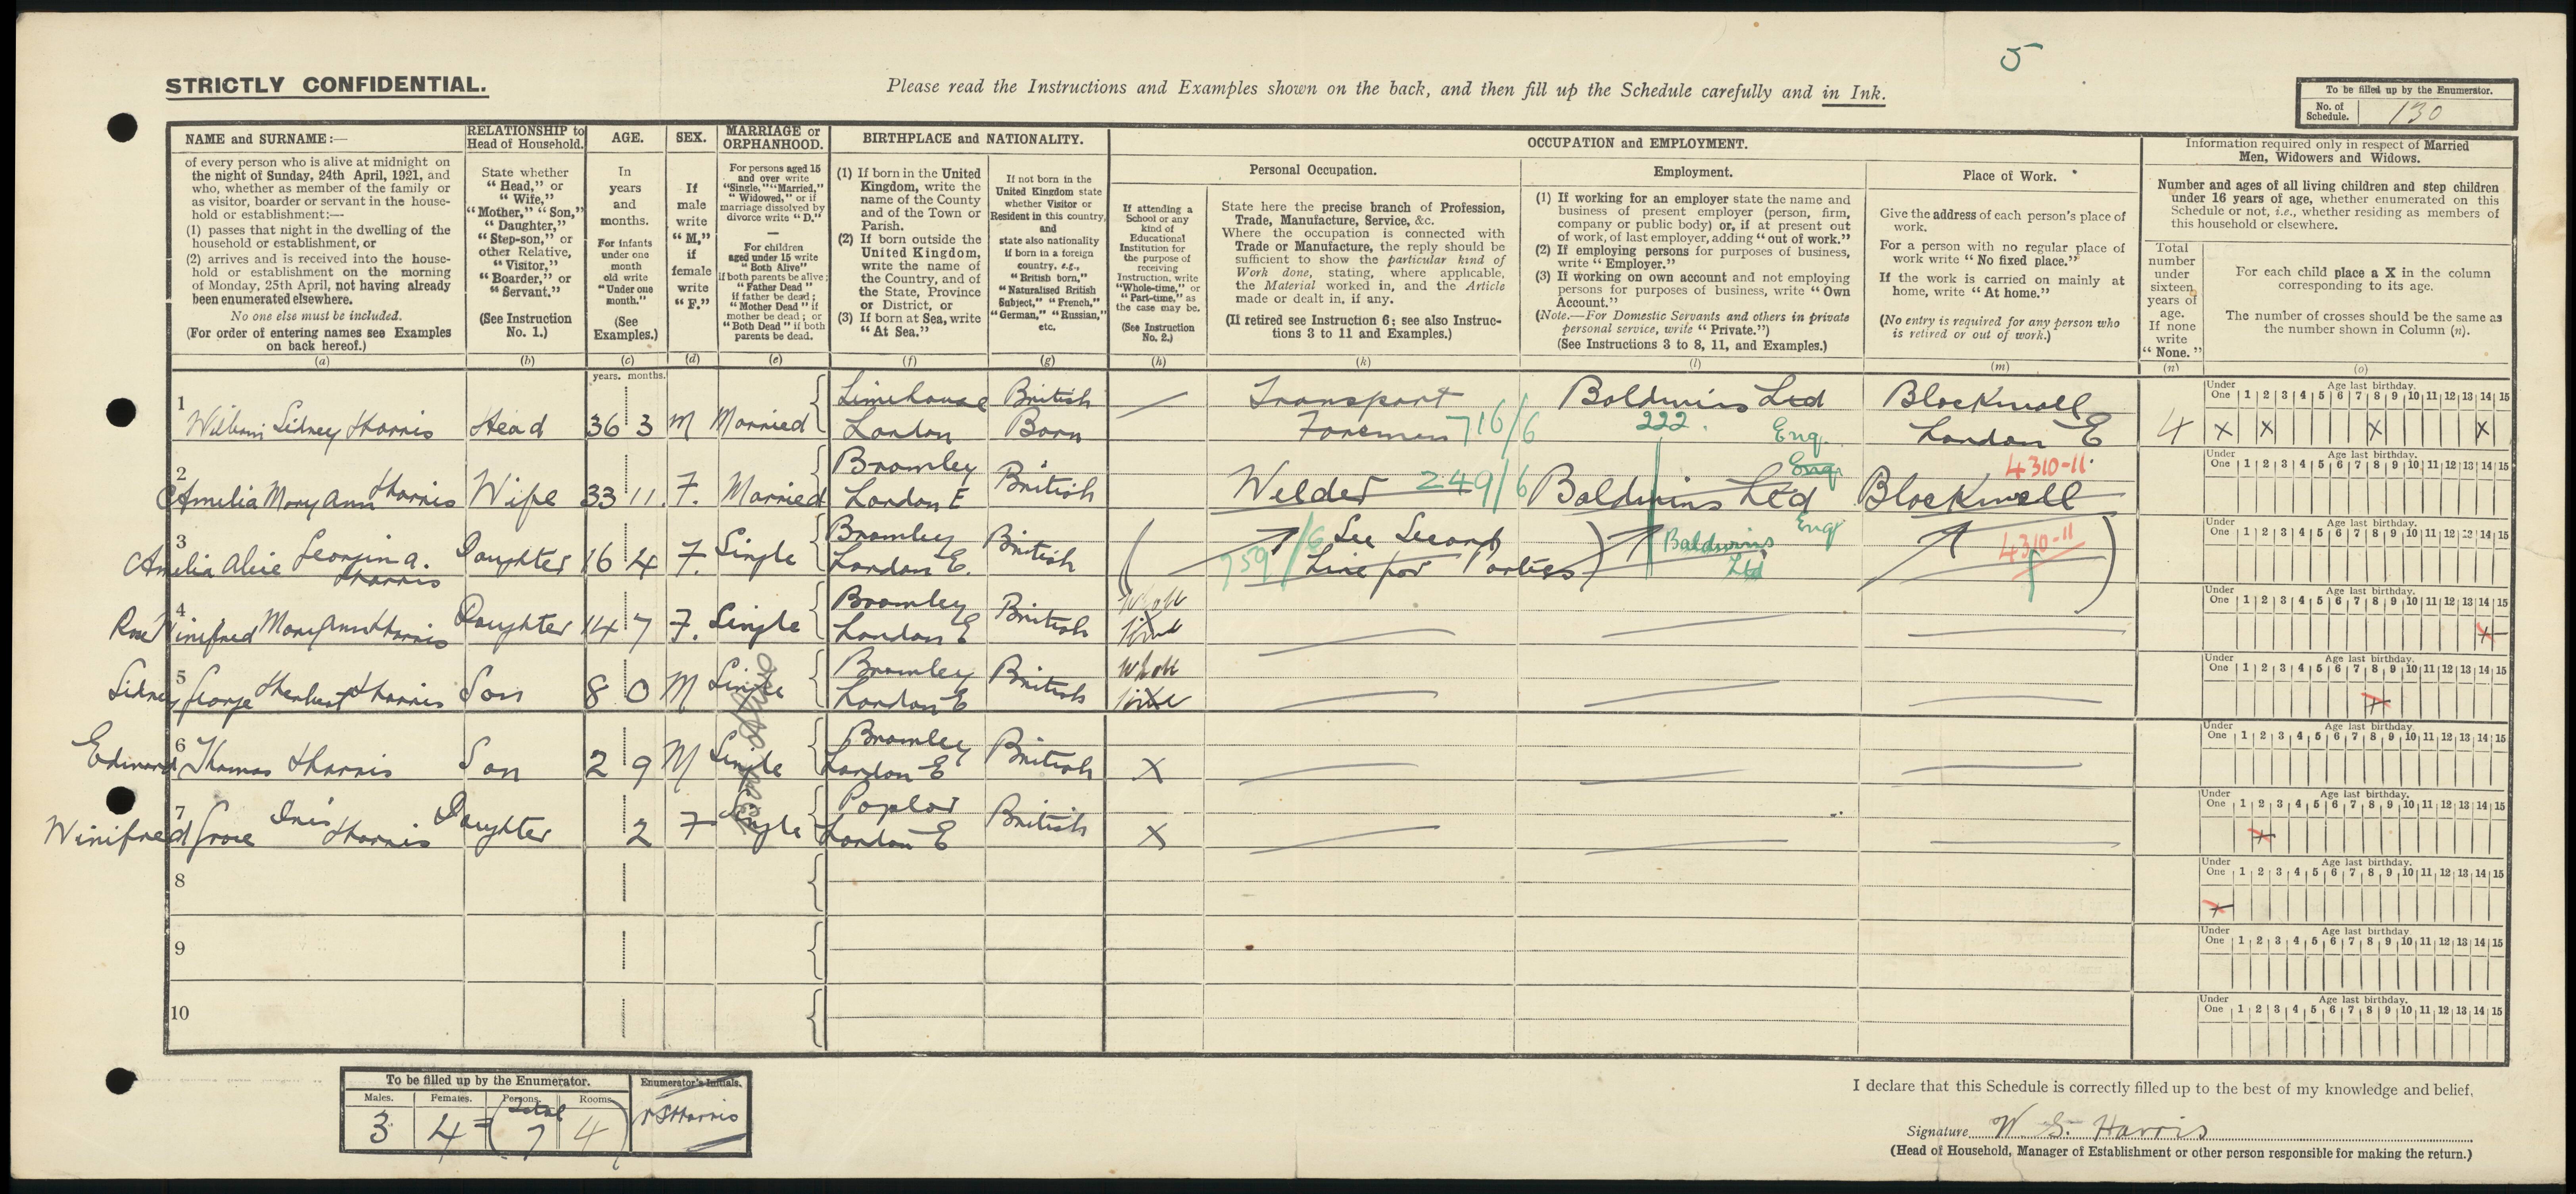 5
STRICTLY CONFIDENTIAL.
Please read the Instructions and Examples shown on the back, and then fill up the Schedule carefully and in Ink.
To be filled up by the Enumerator.
No. of Schedule. 130
NAME and SURNAME:—
of every person who is alive at midnight on
the night of Sunday, 24th April, 1921, and
who, whether as member of the family or
as visitor, boarder or servant in the house-
hold or establishment:—
(1) passes that night in the dwelling of the
household or establishment, or
(2) arrives and is received into the house-
hold or establishment on the morning
of Monday, 25th April, not having already
been enumerated elsewhere.
No one else must be included.
(For order of entering names see Examples
on back hereof.)
(a)
RELATIONSHIP to
Head of Household.
State whether
"Head," or
"Wife,"
"Mother," "Son,"
"Daughter,"
"Step-son," or
other Relative,
"Visitor,"
"Boarder," or
"Servant."
(See Instruction
No. 1.)
(b)
AGE.
In
years
and
months.
For infants
under one
month
old write
"Under one
month."
(See
Examples.)
(c)
years. months.
SEX.
If
male
write
"M,"
if
female
write
"F."
(d)
MARRIAGE or
ORPHANHOOD.
For persons aged 15
and over write
"Single," "Married,"
"Widowed," or if
marriage dissolved by
divorce write "D."
—
For children
aged under 15 write
"Both Alive"
if both parents be alive;
"Father Dead"
if father be dead;
"Mother Dead" if
mother be dead; or
"Both Dead" if both
parents be dead.
(e)
BIRTHPLACE and NATIONALITY.
(1) If born in the United
Kingdom, write the
name of the County
and of the Town or
Parish.
(2) If born outside the
United Kingdom,
write the name of
the Country, and of
the State, Province
or District, or
(3) If born at Sea, write
"At Sea."
(f)
If not born in the
United Kingdom state
whether Visitor or
Resident in this country,
and
state also nationality
if born in a foreign
country, e.g.,
"British born,"
"Naturalised British
Subject," "French,"
"German," "Russian,"
etc.
(g)
OCCUPATION and EMPLOYMENT.
If attending a
School or any
kind of
Educational
Institution for
the purpose of
receiving
Instruction, write
"Whole-time," or
"Part-time," as
the case may be.
(See Instruction
No. 2.)
(h)
Personal Occupation.
State here the precise branch of Profession,
Trade, Manufacture, Service, &c.
Where the occupation is connected with
Trade or Manufacture, the reply should be
sufficient to show the particular kind of
Work done, stating, where applicable,
the Material worked in, and the Article
made or dealt in, if any.
(If retired see Instruction 6; see also Instruc-
tions 3 to 11 and Examples.)
(k)
Employment.
(1) If working for an employer state the name and
business of present employer (person, firm,
company or public body) or, if at present out
of work, of last employer, adding "out of work."
(2) If employing persons for purposes of business,
write "Employer."
(3) If working on own account and not employing
persons for purposes of business, write "Own
Account."
(Note.—For Domestic Servants and others in private
personal service, write "Private.")
(See Instructions 3 to 8, 11, and Examples.)
(l)
Place of Work.
Give the address of each person's place of
work.
For a person with no regular place of
work write "No fixed place."
If the work is carried on mainly at
home, write "At home."
(No entry is required for any person who
is retired or out of work.)
(m)
Information required only in respect of Married
Men, Widowers and Widows.
Number and ages of all living children and step children
under 16 years of age, whether enumerated on this
Schedule or not, i.e., whether residing as members of
this household or elsewhere.
Total
number
under
sixteen
years of
age.
If none
write
"None."
(n)
For each child place a X in the column
corresponding to its age.
The number of crosses should be the same as
the number shown in Column (n).
(o)
Under One Age last birthday. 1 2 3 4 5 6 7 8 9 10 11 12 13 14 15
1 William Sidney Harris Head 36 3 M Married Limehouse London British Born Transport Foreman 716/6 Baldwins Ltd 222. Eng. Blackwall London E 4 X X X X
2 Amelia Mary Ann Harris Wife 33 11. F. Married Bromley London E British Welder 249/6 Baldwins Ltd Eng Blackwall 4310-11
3 Amelia Alice Georgina. Harris Daughter 16 4 F. Single Bromley London E. British (See Second Line for Parties) 759/6 Baldwins Ltd Eng 4310-11
4 Rose Winifred Mary Ann Harris Daughter 14 7 F. Single Bromley London E British Whole time
5 Sidney George Herbert Harris Son 8 0 M Single Bromley London E British Whole time
6 Edward Thomas Harris Son 2 9 M Single Bromley London E British X
7 Winifred Grace Iris Harris Daughter 2 F Single Poplar London E British X
Both Alive
8
9
10
To be filled up by the Enumerator.
Males. Females. Persons. Rooms.
3 4 = (Total 7 4)
Enumerator's Initials.
WSHarris
I declare that this Schedule is correctly filled up to the best of my knowledge and belief,
Signature W. S. Harris
(Head of Household, Manager of Establishment or other person responsible for making the return.)